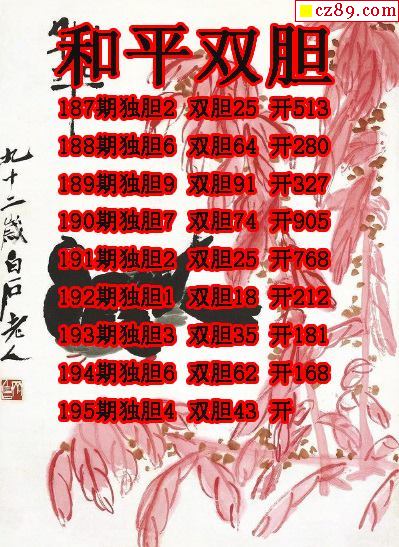 cz89.com
和平双胆
187期独胆2 双胆25 开513
188期独胆6 双胆64 开280
189期独胆9 双胆91 开327
190期独胆7 双胆74 开905
191期独胆2 双胆25 开768
192期独胆1 双胆18 开212
193期独胆3 双胆35 开181
194期独胆6 双胆62 开168
195期独胆4 双胆43 开
九十二岁白石老人